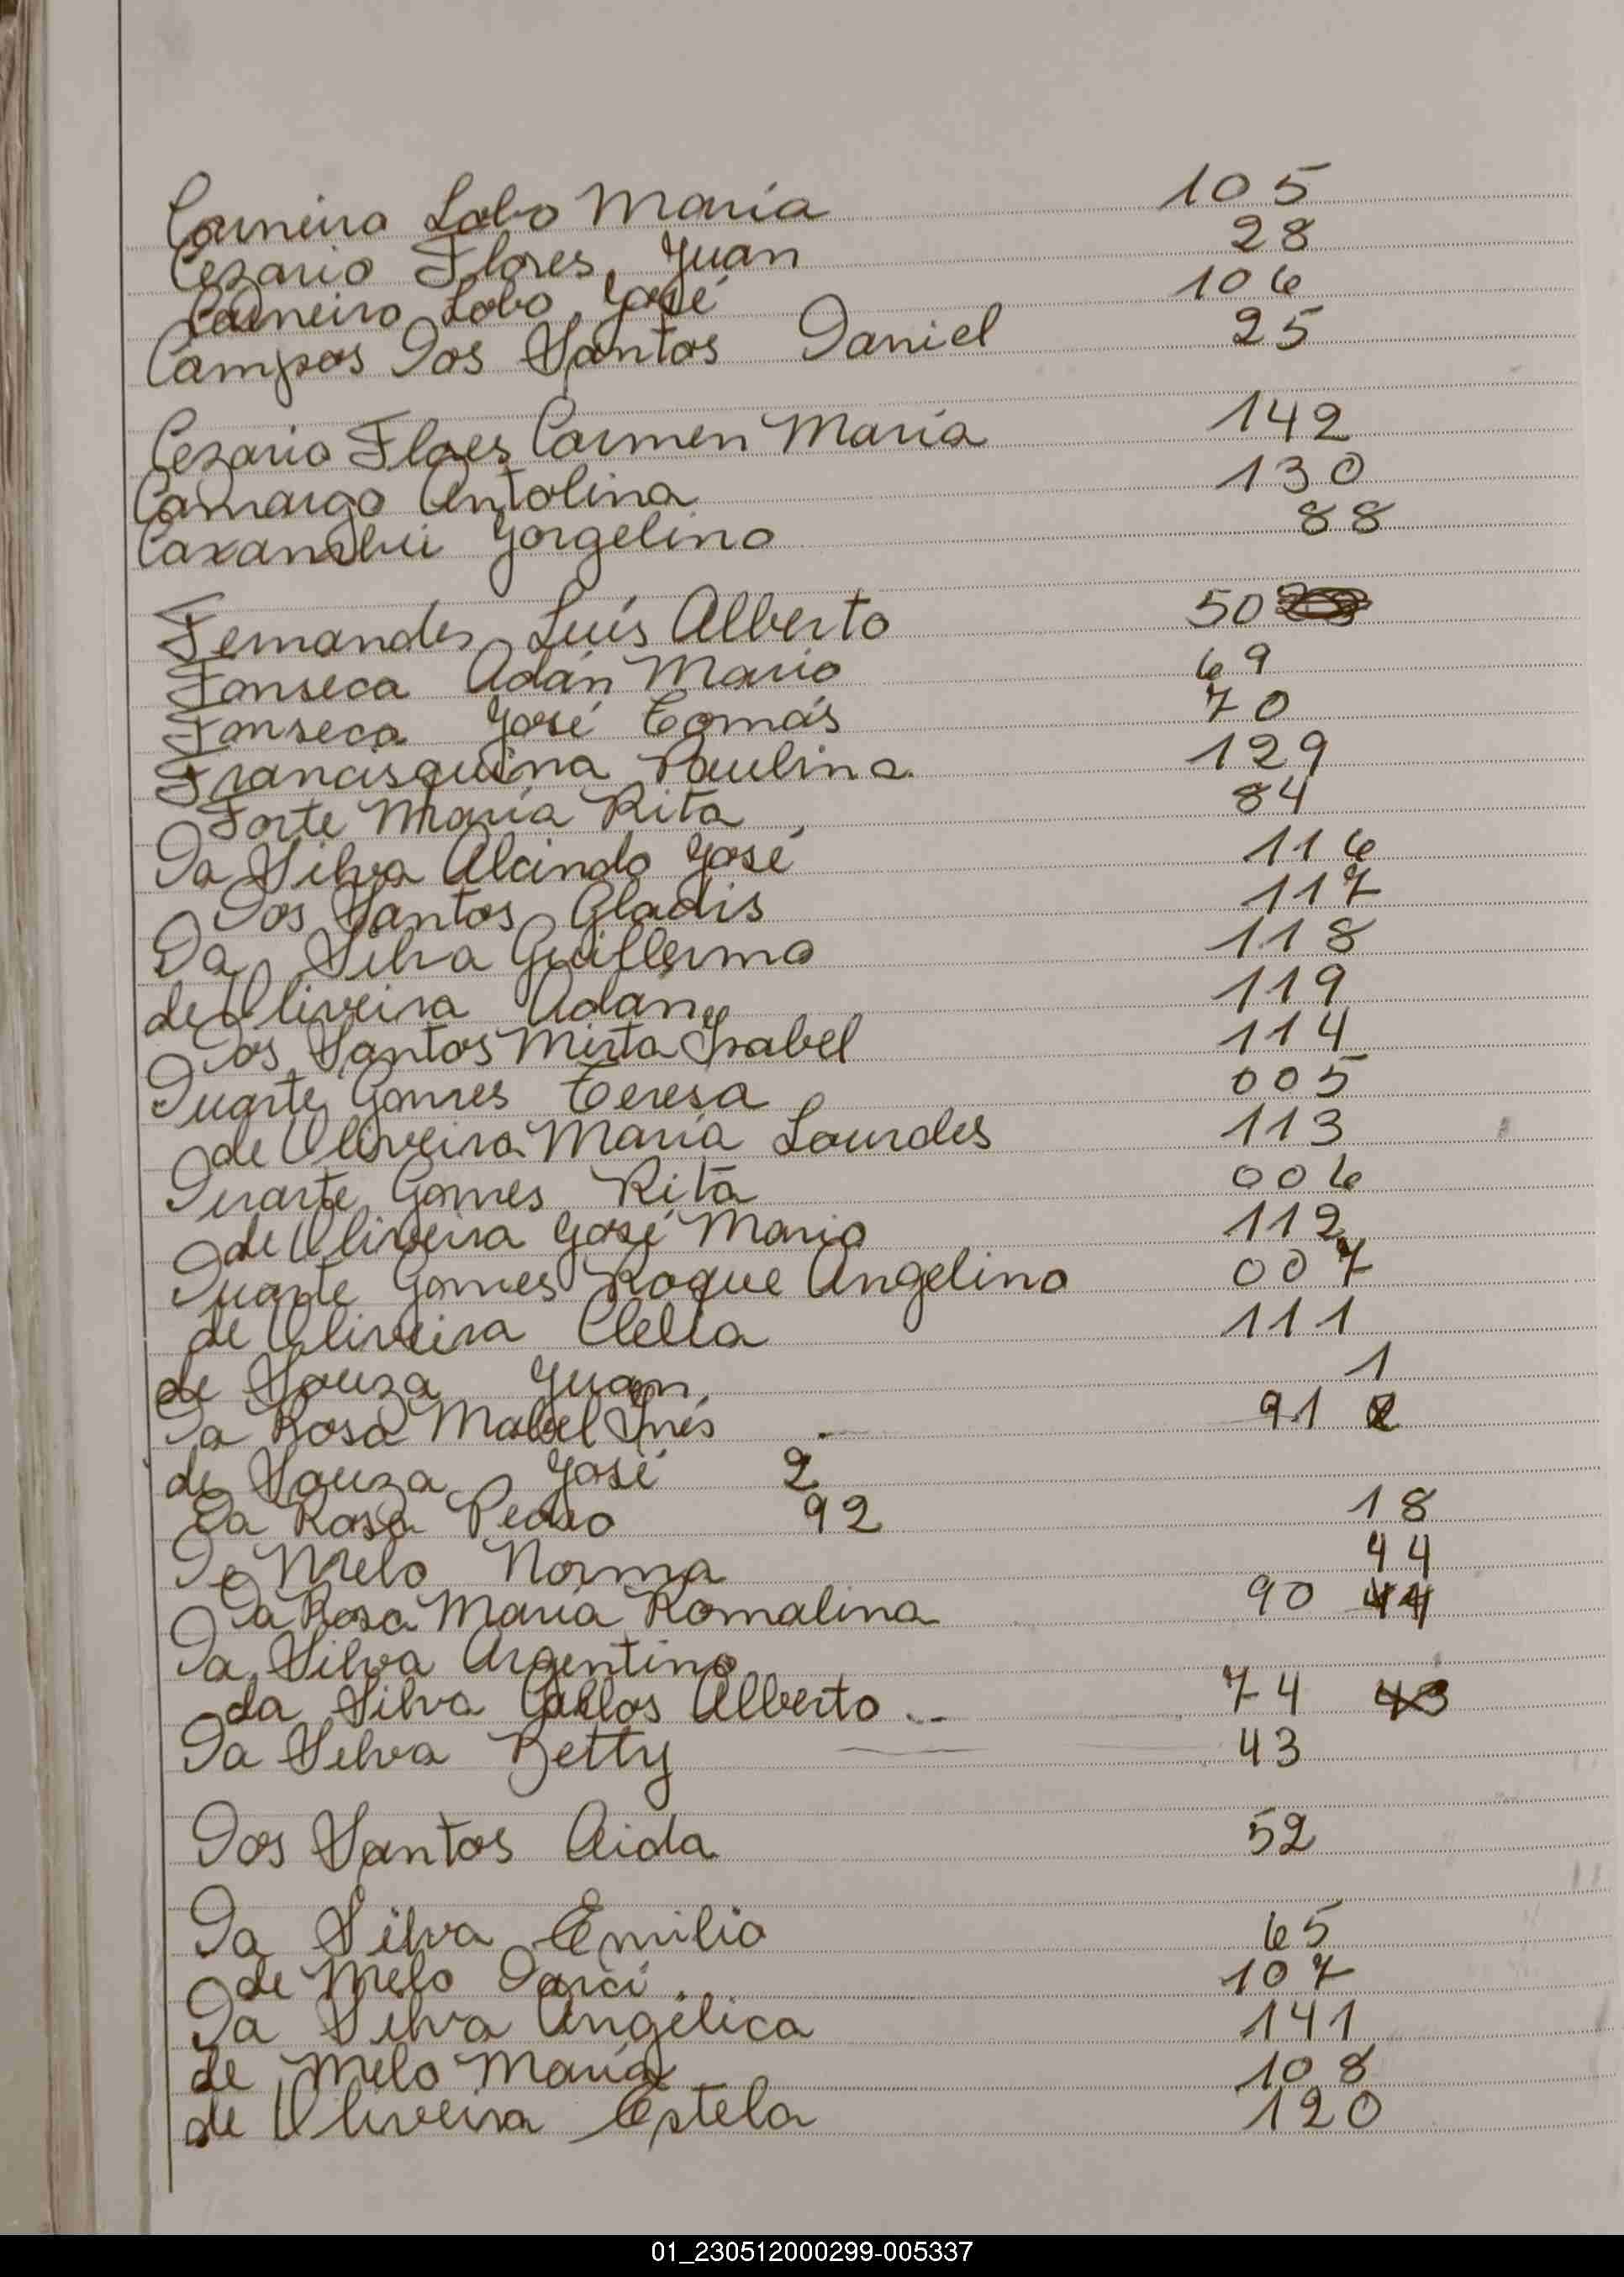 Carneiro Lobo Maria 105
Cezario Flores, Juan 28
Carneiro Lobo José 106
Campos Dos Santos Daniel 25
Cezario Flores Carmen Maria 142
Camargo Antolina 130
Caxambú Jorgelino 88
Fernandes Luís Alberto 50
Fonseca Adán Mario 69
Fonseca José Tomás 70
Francisquina Paulina 129
Forte Maria Rita 84
Da Silva Alcindo José 116
Dos Santos Gladis 117
Da Silva Guillermo 118
de Oliveira Adán 119
Dos Santos Mirta Isabel 114
Duarte Gomes Teresa 005
de Oliveira Maria Lourdes 113
Duarte Gomes Rita 006
de Oliveira José Mario 112
Duarte Gomes Roque Angelino 007
de Oliveira Clelia 111
de Souza Juan 1
Da Rosa Mabel Inés 91 2
de Souza José 2
Da Rosa Pedro 92 18
De Melo Norma 44
Da Rosa Maria Romalina 90 44
Da Silva Argentino
da Silva Carlos Alberto 74 43
Da Silva Betty 43
Dos Santos Aida 52
Da Silva Emilio 65
de Melo Darci 107
Da Silva Angélica 141
de Melo Maria 108
de Oliveira Estela 120
01_230512000299-005337